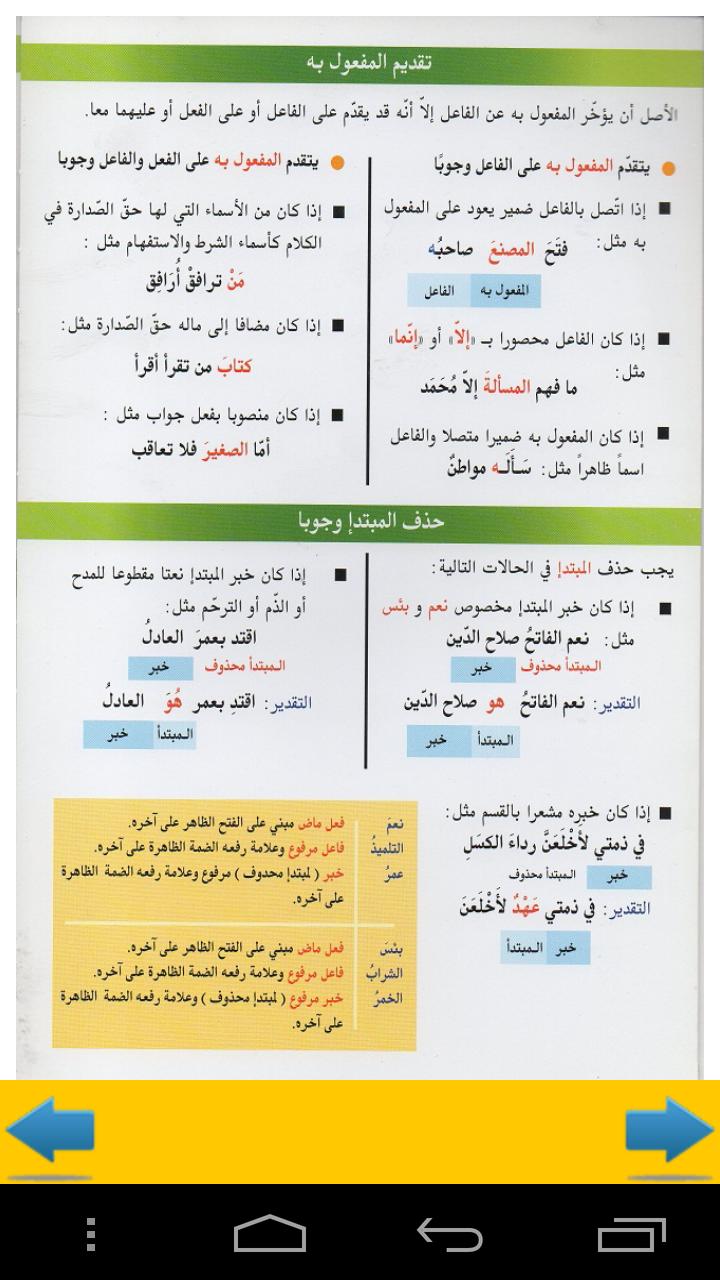 تقديم المفعول به
الأصل أن يؤخّر المفعول به عن الفاعل إلاّ أنّه قد يقدّم على الفاعل أو على الفعل أو عليهما معا.
يتقدّم المفعول به على الفاعل وجوبًا
إذا اتّصل بالفاعل ضمير يعود على المفعول
به مثل:
فتَحَ المصنعَ صاحبُه
المفعول به الفاعل
إذا كان الفاعل محصورا بـ «إلاّ» أو «إنّما»
مثل:
ما فهم المسألةَ إلاّ مُحَمَد
إذا كان المفعول به ضميرا متصلا والفاعل
اسماً ظاهراً مثل: سَأَلَـه مواطنٌ
يتقدم المفعول به على الفعل والفاعل وجوبا
إذا كان من الأسماء التي لها حقّ الصّدارة في
الكلام كأسماء الشرط والاستفهام مثل :
مَنْ ترافقْ أُرَافِق
إذا كان مضافا إلى ماله حقّ الصّدارة مثل:
كتابَ من تقرأ أقرأ
إذا كان منصوبا بفعل جواب مثل :
أمّا الصغيرَ فلا تعاقب
حذف المبتدإ وجوبا
يجب حذف المبتدإ في الحالات التالية:
إذا كان خبر المبتدإ مخصوص نعم و بئس
مثل: نعم الفاتحُ صلاح الدّين
المبتدأ محذوف خبر
التقدير: نعم الفاتحُ هو صلاح الدّين
المبتدأ خبر
إذا كان خبر المبتدإ نعتا مقطوعا للمدح
أو الذّم أو الترحّم مثل:
اقتد بعمرَ العادلُ
المبتدأ محذوف خبر
التقدير: اقتدِ بعمر هُوَ العادلُ
المبتدأ خبر
إذا كان خبره مشعرا بالقسم مثل:
في ذمتي لأَخْلَعَنَّ رداءَ الكسَلِ
خبر المبتدأ محذوف
التقدير: في ذمتي عَهْدٌ لأَخْلَعَنَ
خبر المبتدأ
نعمَ فعل ماض مبني على الفتح الظاهر على آخره.
التلميذُ فاعل مرفوع وعلامة رفعه الضمة الظاهرة على آخره.
عمرُ خبر ( لمبتدإ محدوف ) مرفوع وعلامة رفعه الضمة الظاهرة
على آخره.
بئسَ فعل ماض مبني على الفتح الظاهر على آخره.
الشرابُ فاعل مرفوع وعلامة رفعه الضمة الظاهرة على آخره.
الخمرُ خبر مرفوع ( لمبتدإ محذوف ) وعلامة رفعه الضمة الظاهرة
على آخره.